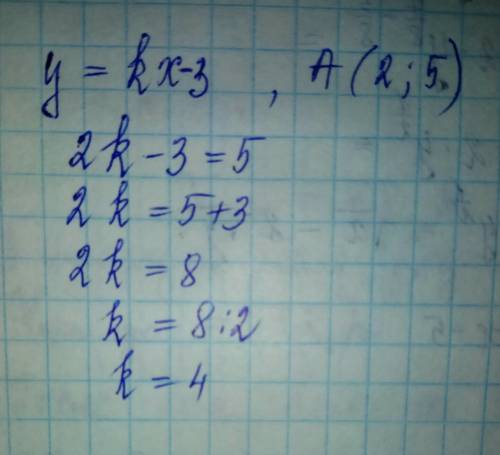 y = kx-3 , A (2; 5)
2k - 3 = 5
2k = 5+3
2k = 8
k = 8:2
k = 4